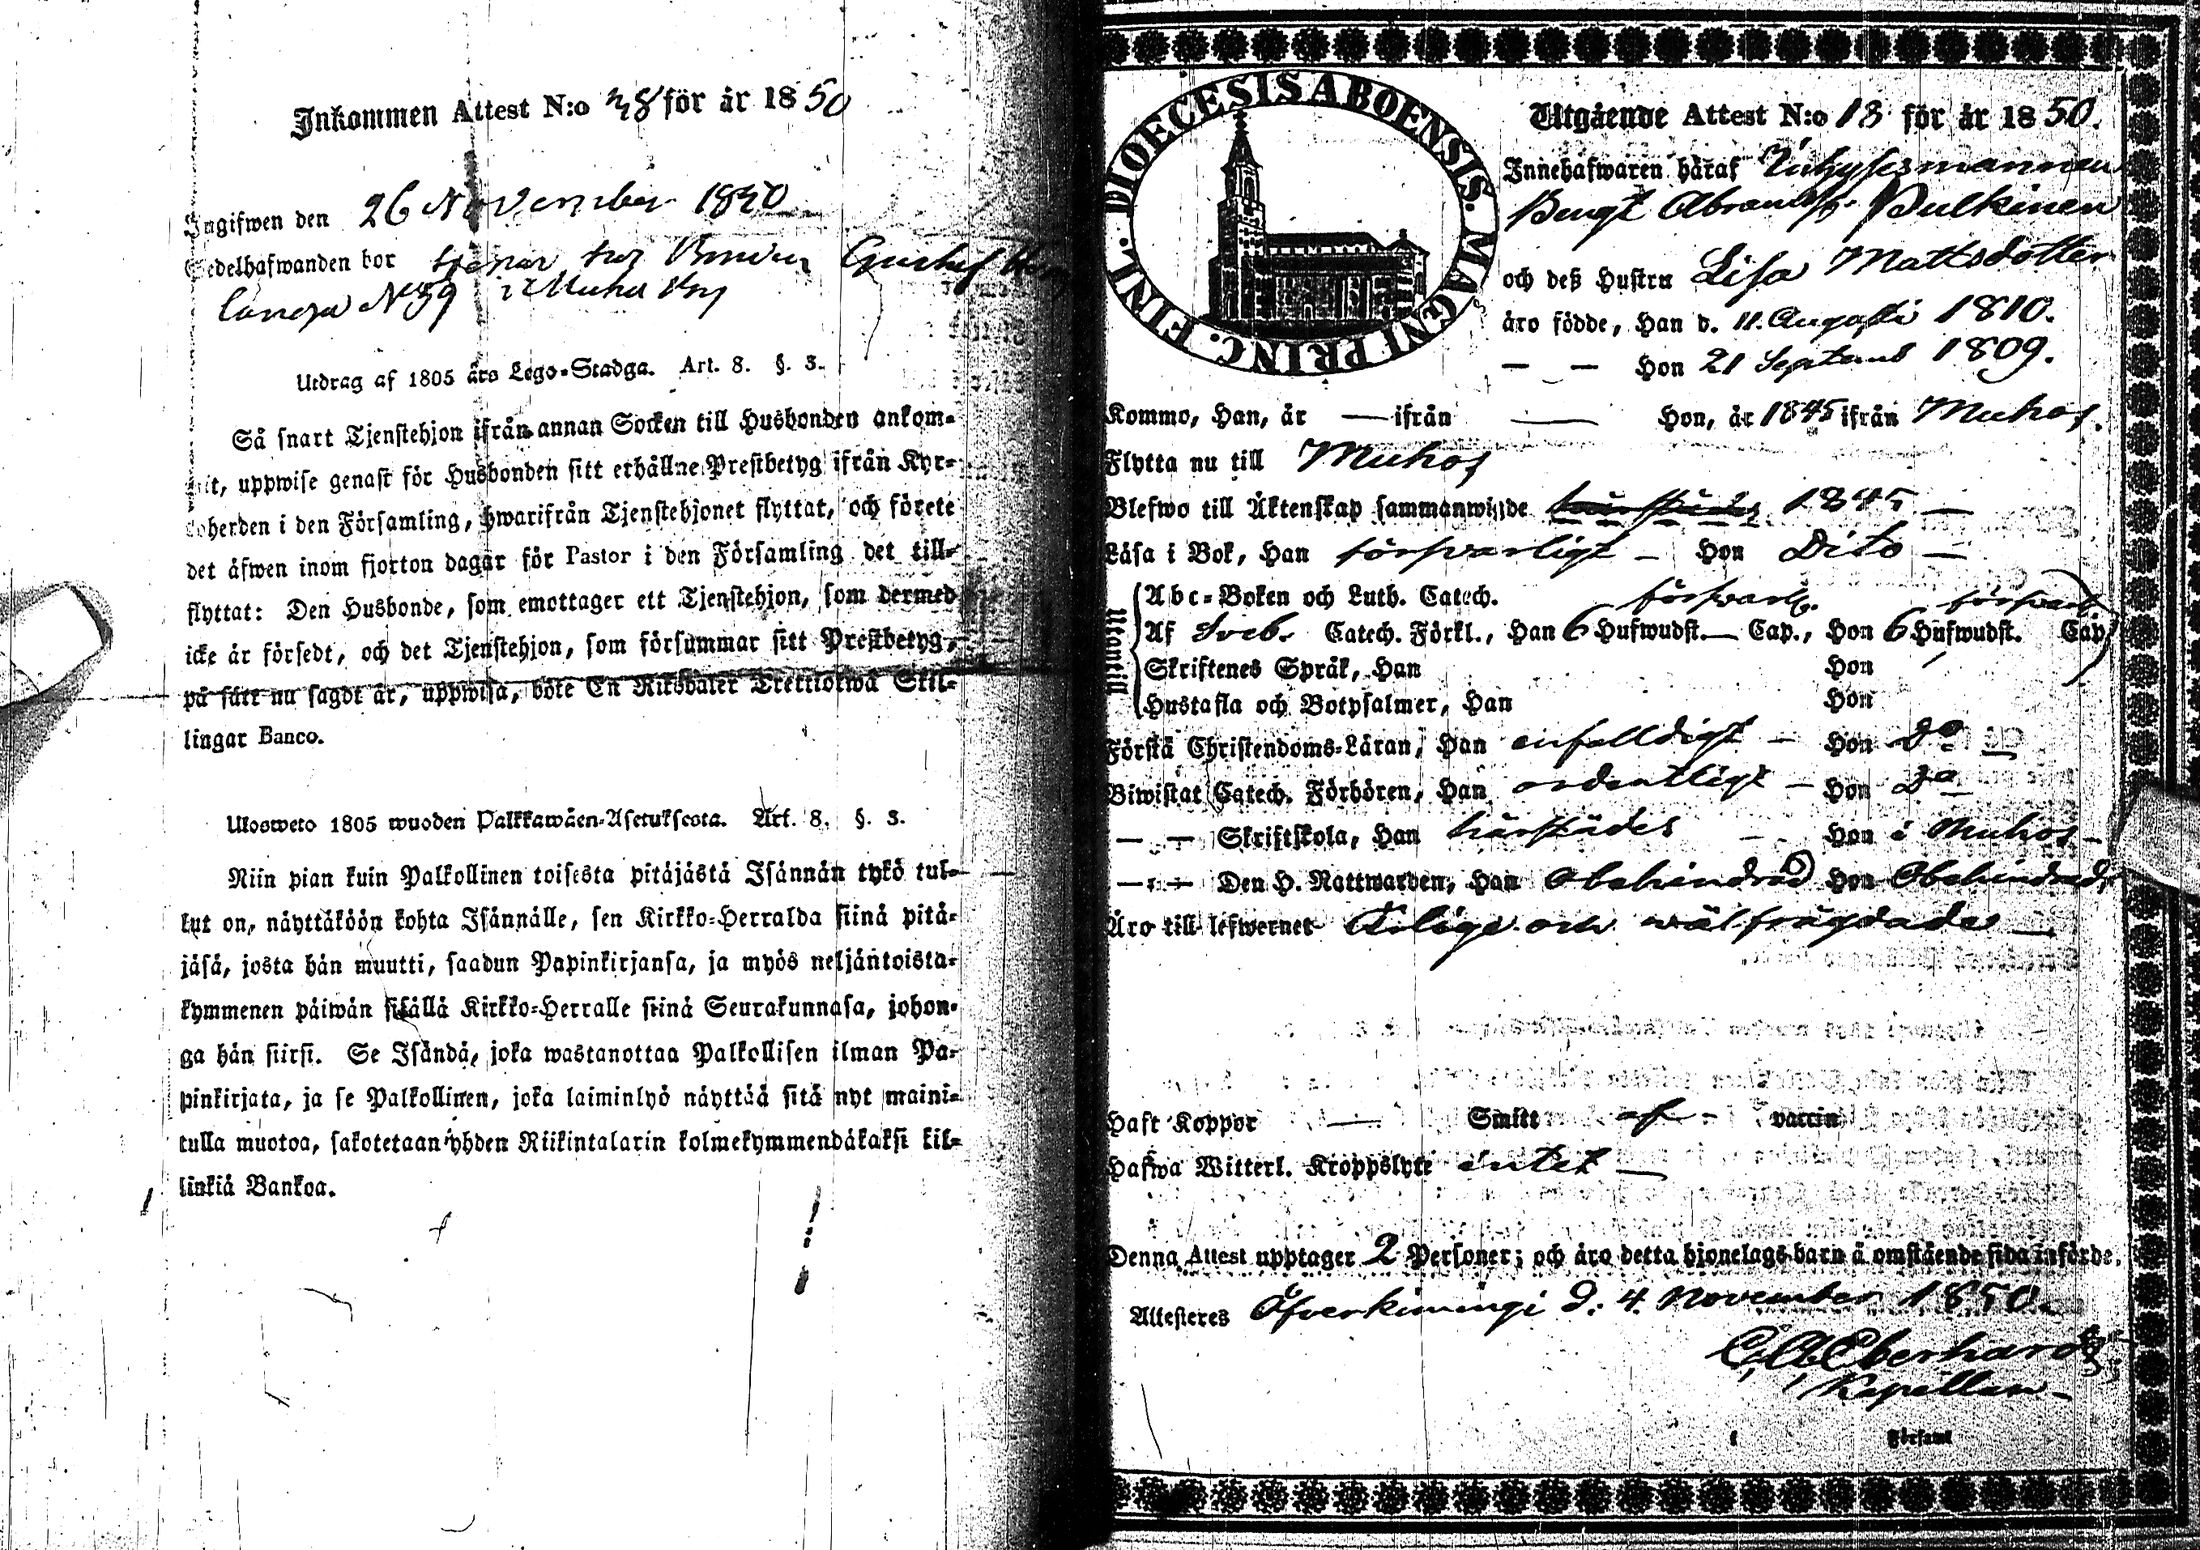 Inkommen Attest N:o 28 för år 1850
Ingifwen den 26 November 1850
Sedelhafwanden bor tjenar hos Bonden Gustaf
N 39 i Muhos
Utdrag af 1805 års Lego-Stadga. Art. 8. §. 3.
Så snart Tjenstehjon ifrån annan Socken till Husbonden ankom-
mit, uppwise genast för Husbonden sitt erhållne Prestbetyg ifrån Kyr-
koherden i den Församling, hwarifrån Tjenstehjonet flyttat, och förete
det äfwen inom fjorton dagar för Pastor i den Församling det till-
flyttat: Den Husbonde, som emottager ett Tjenstehjon, som dermed
icke är försedt, och det Tjenstehjon, som försummar sitt Prestbetyg,
på sätt nu sagdt är, uppwisa, böte En Riksdaler Trettiotwå Skil-
lingar Banco.
Ulosweto 1805 wuoden Palkkawäen-Asetuksesta. Art. 8. §. 3.
Niin pian kuin Palkollinen toisesta pitäjästä Isännän tykö tul-
lut on, näyttäköön kohta Isännälle, sen Kirkko-Herralda siinä pitä-
jäsä, josta hän muutti, saadun Papinkirjansa, ja myös neljäntoista-
kymmenen päiwän sisällä Kirkko-Herralle siinä Seurakunnasa, johon-
ga hän siirsi. Se Isändä, joka wastanottaa Palkollisen ilman Pa-
pinkirjata, ja se Palkollinen, joka laiminlyö näyttää sitä nyt maini-
tulla muotoa, sakotetaan yhden Riikintalarin kolmekymmendäkaksi kil-
linkiä Bankoa.
DIOECESIS ABOENSIS. MAGNI PRINC. FINL.
Utgående Attest N:o 13 för år 1850.
Innehafwaren häraf Inhysesmannen
Bengt Abramsf. Pulkinen
och deß Hustru Lisa Mattsdotter
äro födde, Han d. 11. Augusti 1810.
— — Hon 21 Septemb 1809.
Kommo, Han, år — ifrån — Hon, år 1845 ifrån Muhos.
Flytta nu till Muhos
Blefwo till Äktenskap sammanwigde härstädes 1845 —
Läsa i Bok, Han försvarligt — Hon Dito —
Utantill
Abc-Boken och Luth. Catech. försvarl. försvarl.
Af Sveb. Catech. Förkl., Han 6 Hufwudst. — Cap., Hon 6 Hufwudst. Cap.
Skriftenes Språk, Han Hon
Hustafla och Botpsalmer, Han Hon
Förstå Christendoms-Läran, Han enfalldigt — Hon Do —
Biwistat Catech. Förhören, Han ordentligt — Hon Do
— — Skriftskola, Han härstädes — Hon i Muhos —
— — Den H. Nattwarden, Han Obehindrad Hon Obehindrad
Äro till lefwernet Ärlige och wälfrägdade —
Haft Koppor — Smitt af - vaccin
Hafwa Witterl. Kroppslyte intet —
Denna Attest upptager 2 Personer; och äro detta hjonelags barn å omstående sida införde.
Attesteres Öfverkiimingi d. 4. November 1850.
C. A. Eberhardt,
Kapellan —
Församl